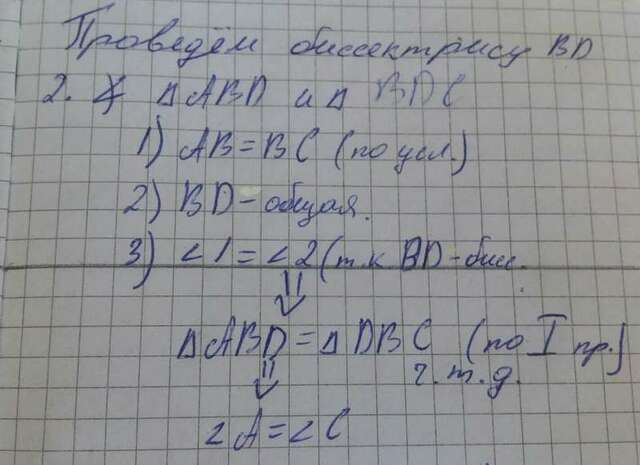 Проведём биссектрису BD
2. ∡ ΔABD и Δ BDC
1) AB = BC (по усл.)
2) BD - общая.
3) <1 = <2 (т.к BD - бисс.
⇓
ΔABD = Δ DBC (по I пр.)
⇓ ч.т.д.
∠A = ∠C